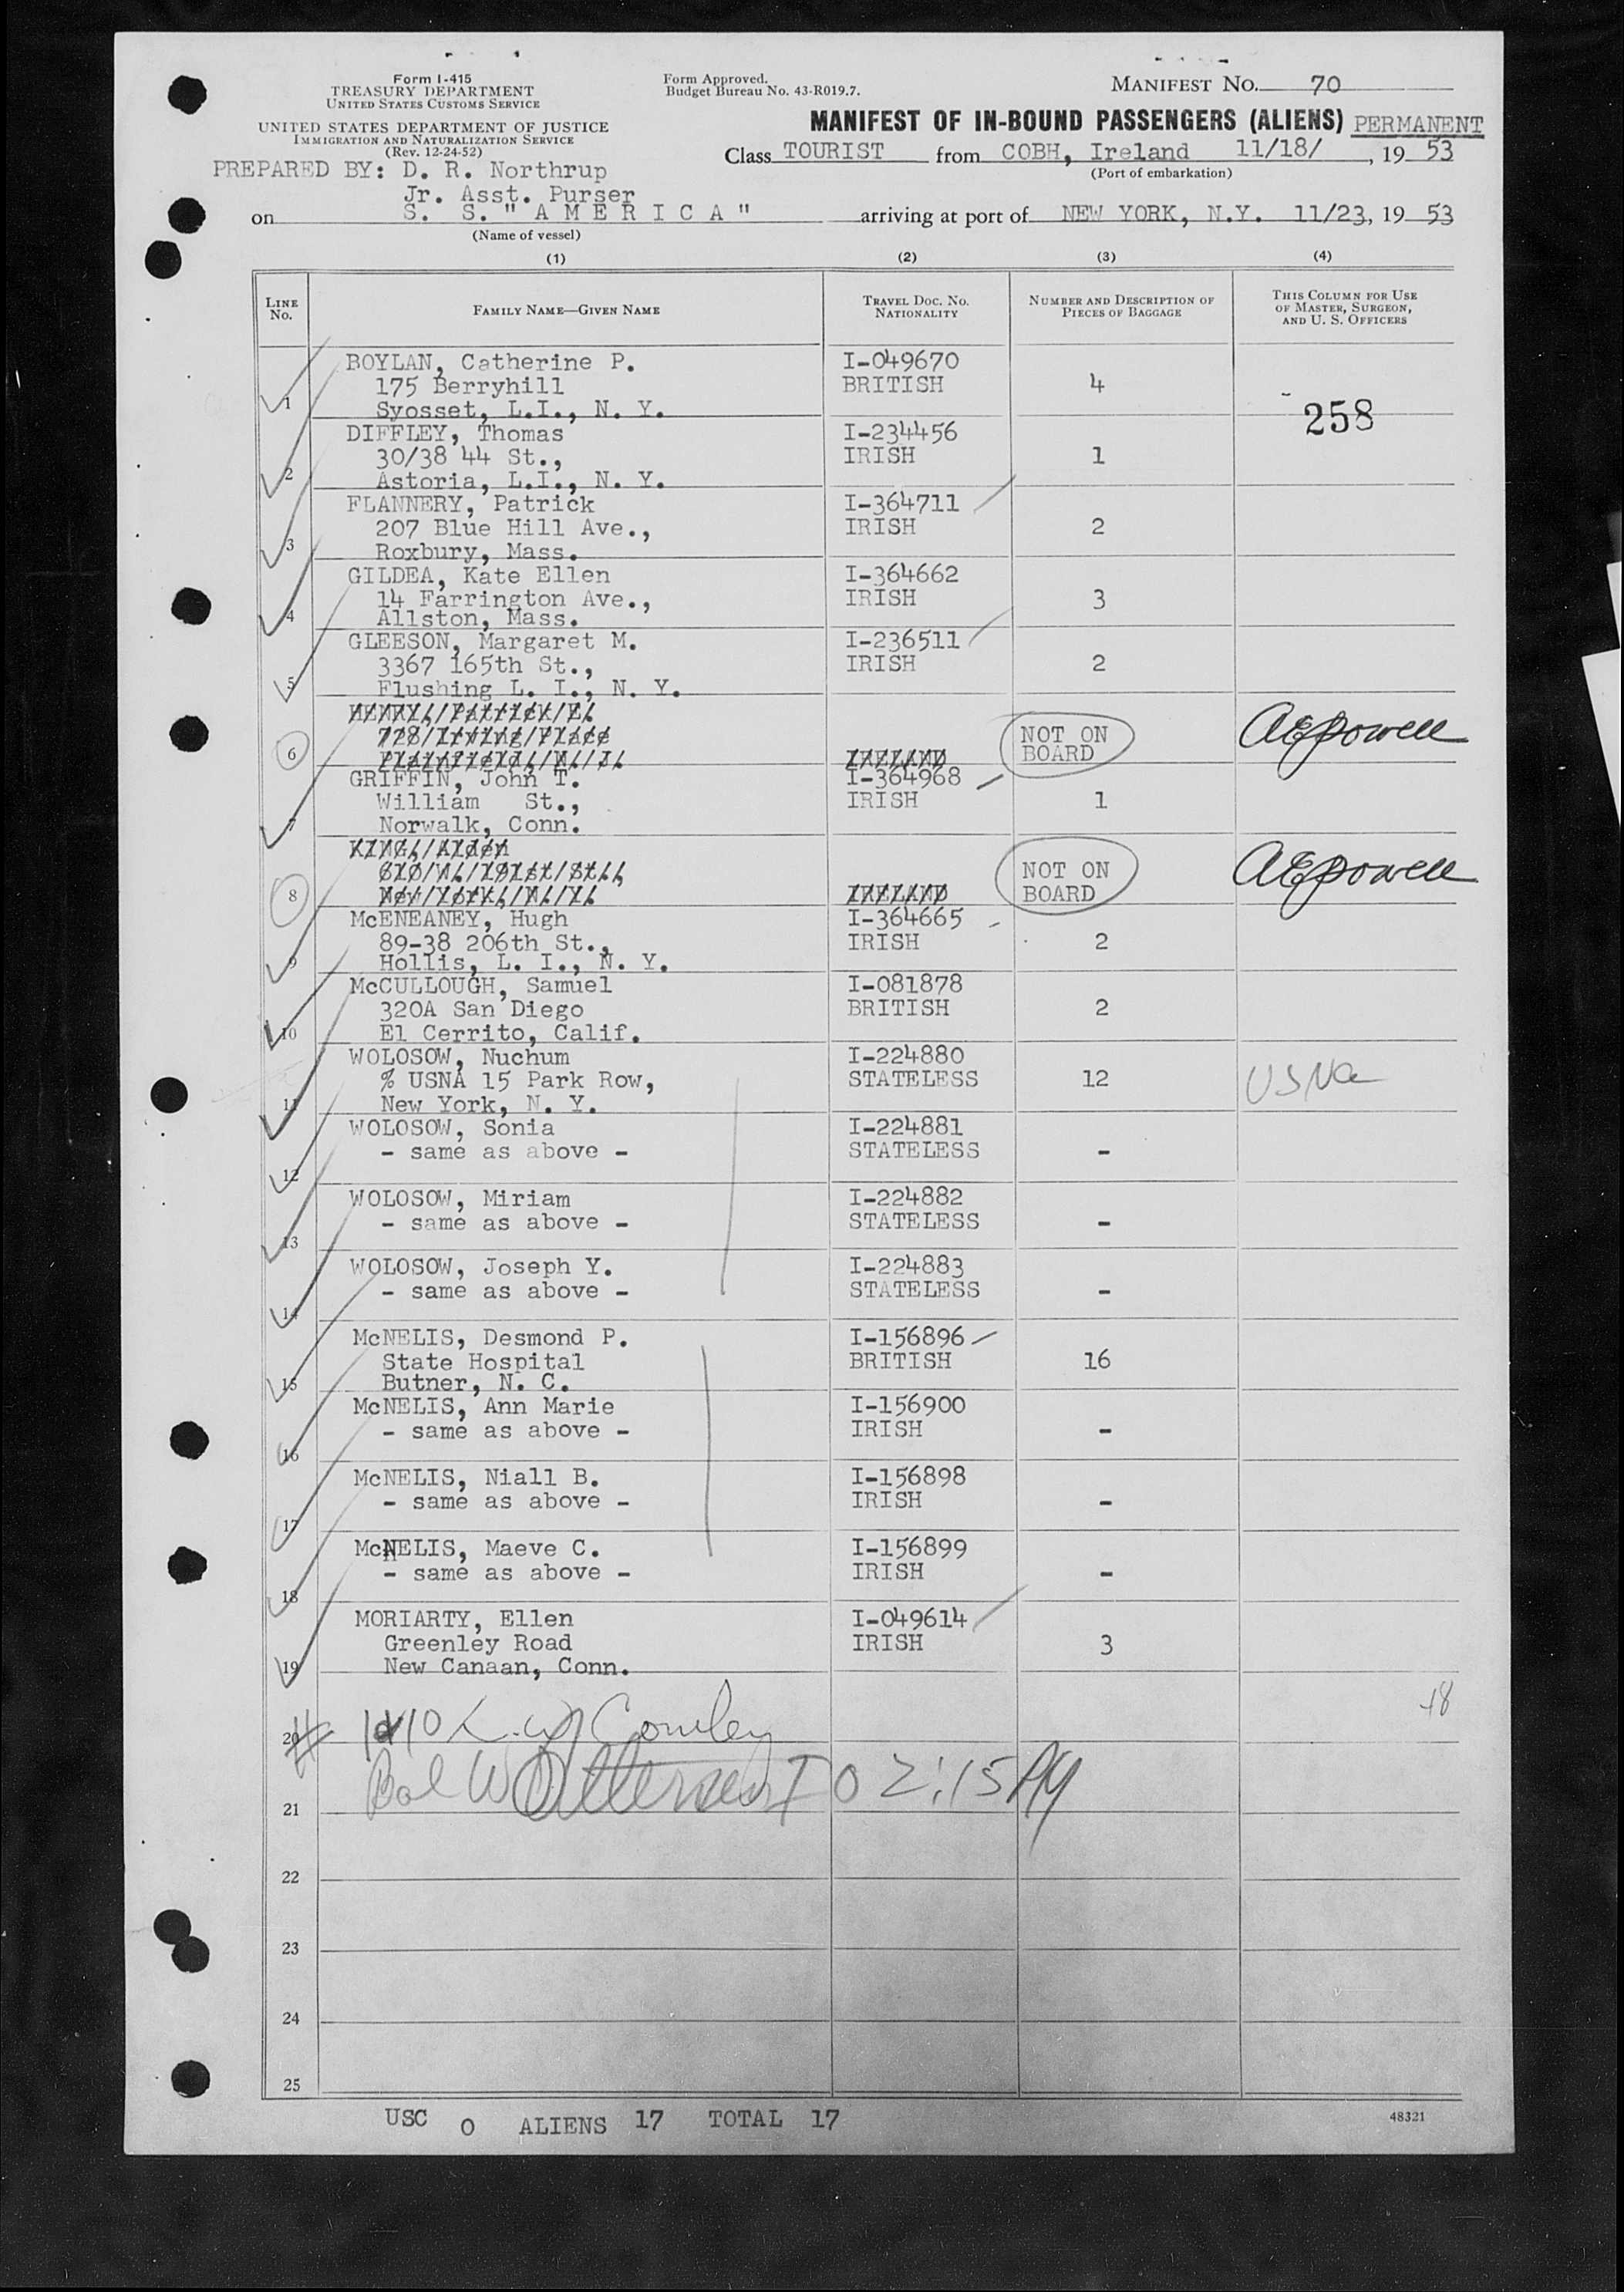 Form I-415
TREASURY DEPARTMENT
UNITED STATES CUSTOMS SERVICE
UNITED STATES DEPARTMENT OF JUSTICE
IMMIGRATION AND NATURALIZATION SERVICE
(Rev. 12-24-52)
Form Approved.
Budget Bureau No. 43-R019.7.
MANIFEST NO. 70
MANIFEST OF IN-BOUND PASSENGERS (ALIENS) PERMANENT
Class TOURIST from COBH, Ireland 11/18/, 19 53
(Port of embarkation)
PREPARED BY: D. R. Northrup
Jr. Asst. Purser
on S. S. "AMERICA" arriving at port of NEW YORK, N.Y. 11/23, 19 53
(Name of vessel)
(1) (2) (3) (4)
LINE No. FAMILY NAME—GIVEN NAME TRAVEL DOC. NO. NATIONALITY NUMBER AND DESCRIPTION OF PIECES OF BAGGAGE THIS COLUMN FOR USE OF MASTER, SURGEON, AND U. S. OFFICERS
BOYLAN, Catherine P. I-049670
175 Berryhill BRITISH 4
1 Syosset, L.I., N. Y. 258
DIFFLEY, Thomas I-234456
30/38 44 St., IRISH 1
2 Astoria, L.I., N. Y.
FLANNERY, Patrick I-364711
207 Blue Hill Ave., IRISH 2
3 Roxbury, Mass.
GILDEA, Kate Ellen I-364662
14 Farrington Ave., IRISH 3
4 Allston, Mass.
GLEESON, Margaret M. I-236511
3367 165th St., IRISH 2
5 Flushing L. I., N. Y.
HENRY, Patrick E.
728 Irving Place NOT ON AEPowell
6 Plainfield, N. J. IRELAND BOARD
GRIFFIN, John T. I-364968
William St., IRISH 1
7 Norwalk, Conn.
KING, Aiden
NOT ON AEPowell
8 New York, N. Y. IRELAND BOARD
McENEANEY, Hugh I-364665
89-38 206th St., IRISH 2
9 Hollis, L. I., N. Y.
McCULLOUGH, Samuel I-081878
320A San Diego BRITISH 2
10 El Cerrito, Calif.
WOLOSOW, Nuchum I-224880
% USNA 15 Park Row, STATELESS 12 USNa
11 New York, N. Y.
WOLOSOW, Sonia I-224881
- same as above - STATELESS -
12
WOLOSOW, Miriam I-224882
- same as above - STATELESS -
13
WOLOSOW, Joseph Y. I-224883
- same as above - STATELESS -
14
McNELIS, Desmond P. I-156896
State Hospital BRITISH 16
15 Butner, N. C.
McNELIS, Ann Marie I-156900
- same as above - IRISH -
16
McNELIS, Niall B. I-156898
- same as above - IRISH -
17
McNELIS, Maeve C. I-156899
- same as above - IRISH -
18
MORIARTY, Ellen I-049614
Greenley Road IRISH 3
19 New Canaan, Conn.
20
21 2:15
22
23
24
25
USC 0 ALIENS 17 TOTAL 17
48321